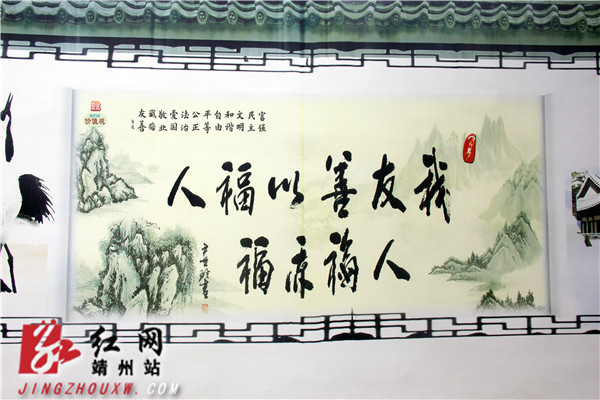 富强 民主 文明 和谐 自由 平等 公正 法治 爱国 敬业 诚信 友善
价值观
我友善以福人
人福亦福
红网
靖州站
JINGZHOUXW.COM